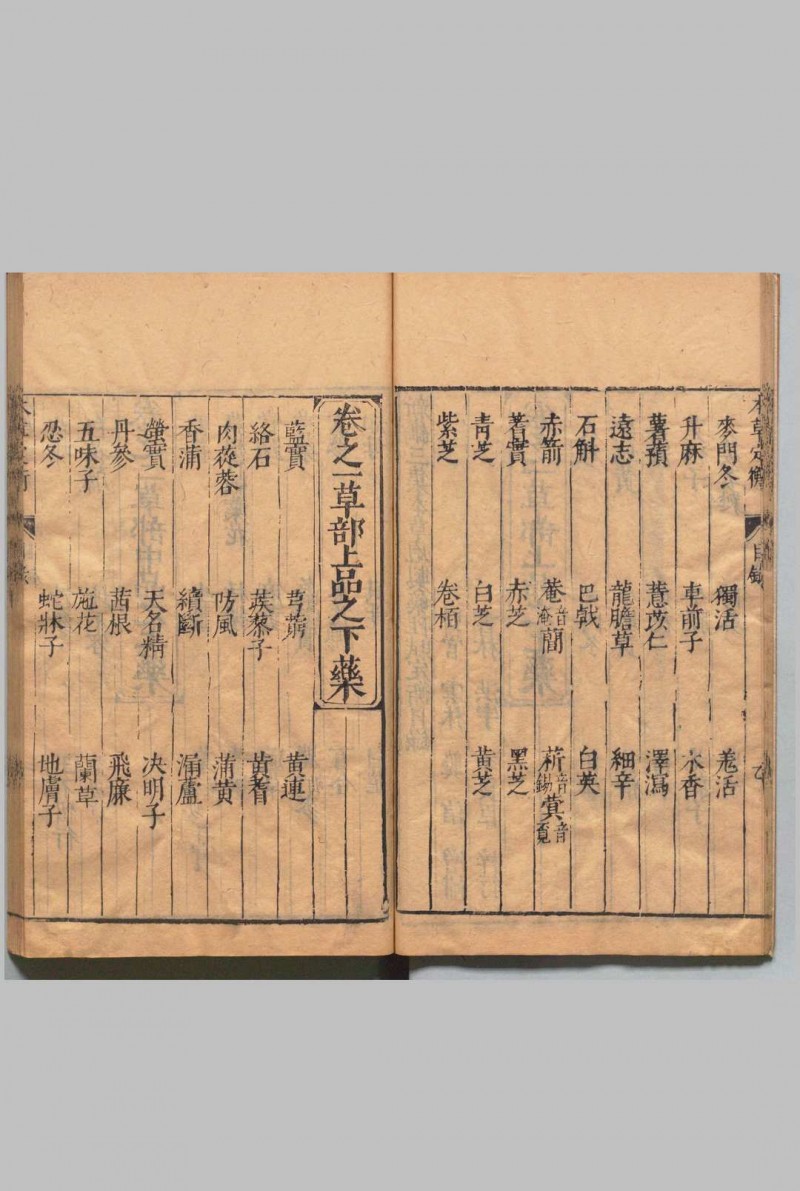 目錄
麥門冬 獨活 羗活
升麻 車前子 木香
薯蕷 薏苡仁 澤瀉
遠志 龍膽草 細辛
石斛 巴戟 白英
赤箭 菴音淹䕡 菥音錫蓂音覓
蓍實 赤芝 黑芝
靑芝 白芝 黃芝
紫芝 卷栢
卷之一草部上品之下藥
藍實 芎藭 黃連
絡石 蒺蔾子 黃耆
肉蓯蓉 防風 蒲黃
香蒲 續斷 漏蘆
營實 天名精 决明子
丹參 茜根 飛廉
五味子 旋花 蘭草
忍冬 蛇牀子 地膚子